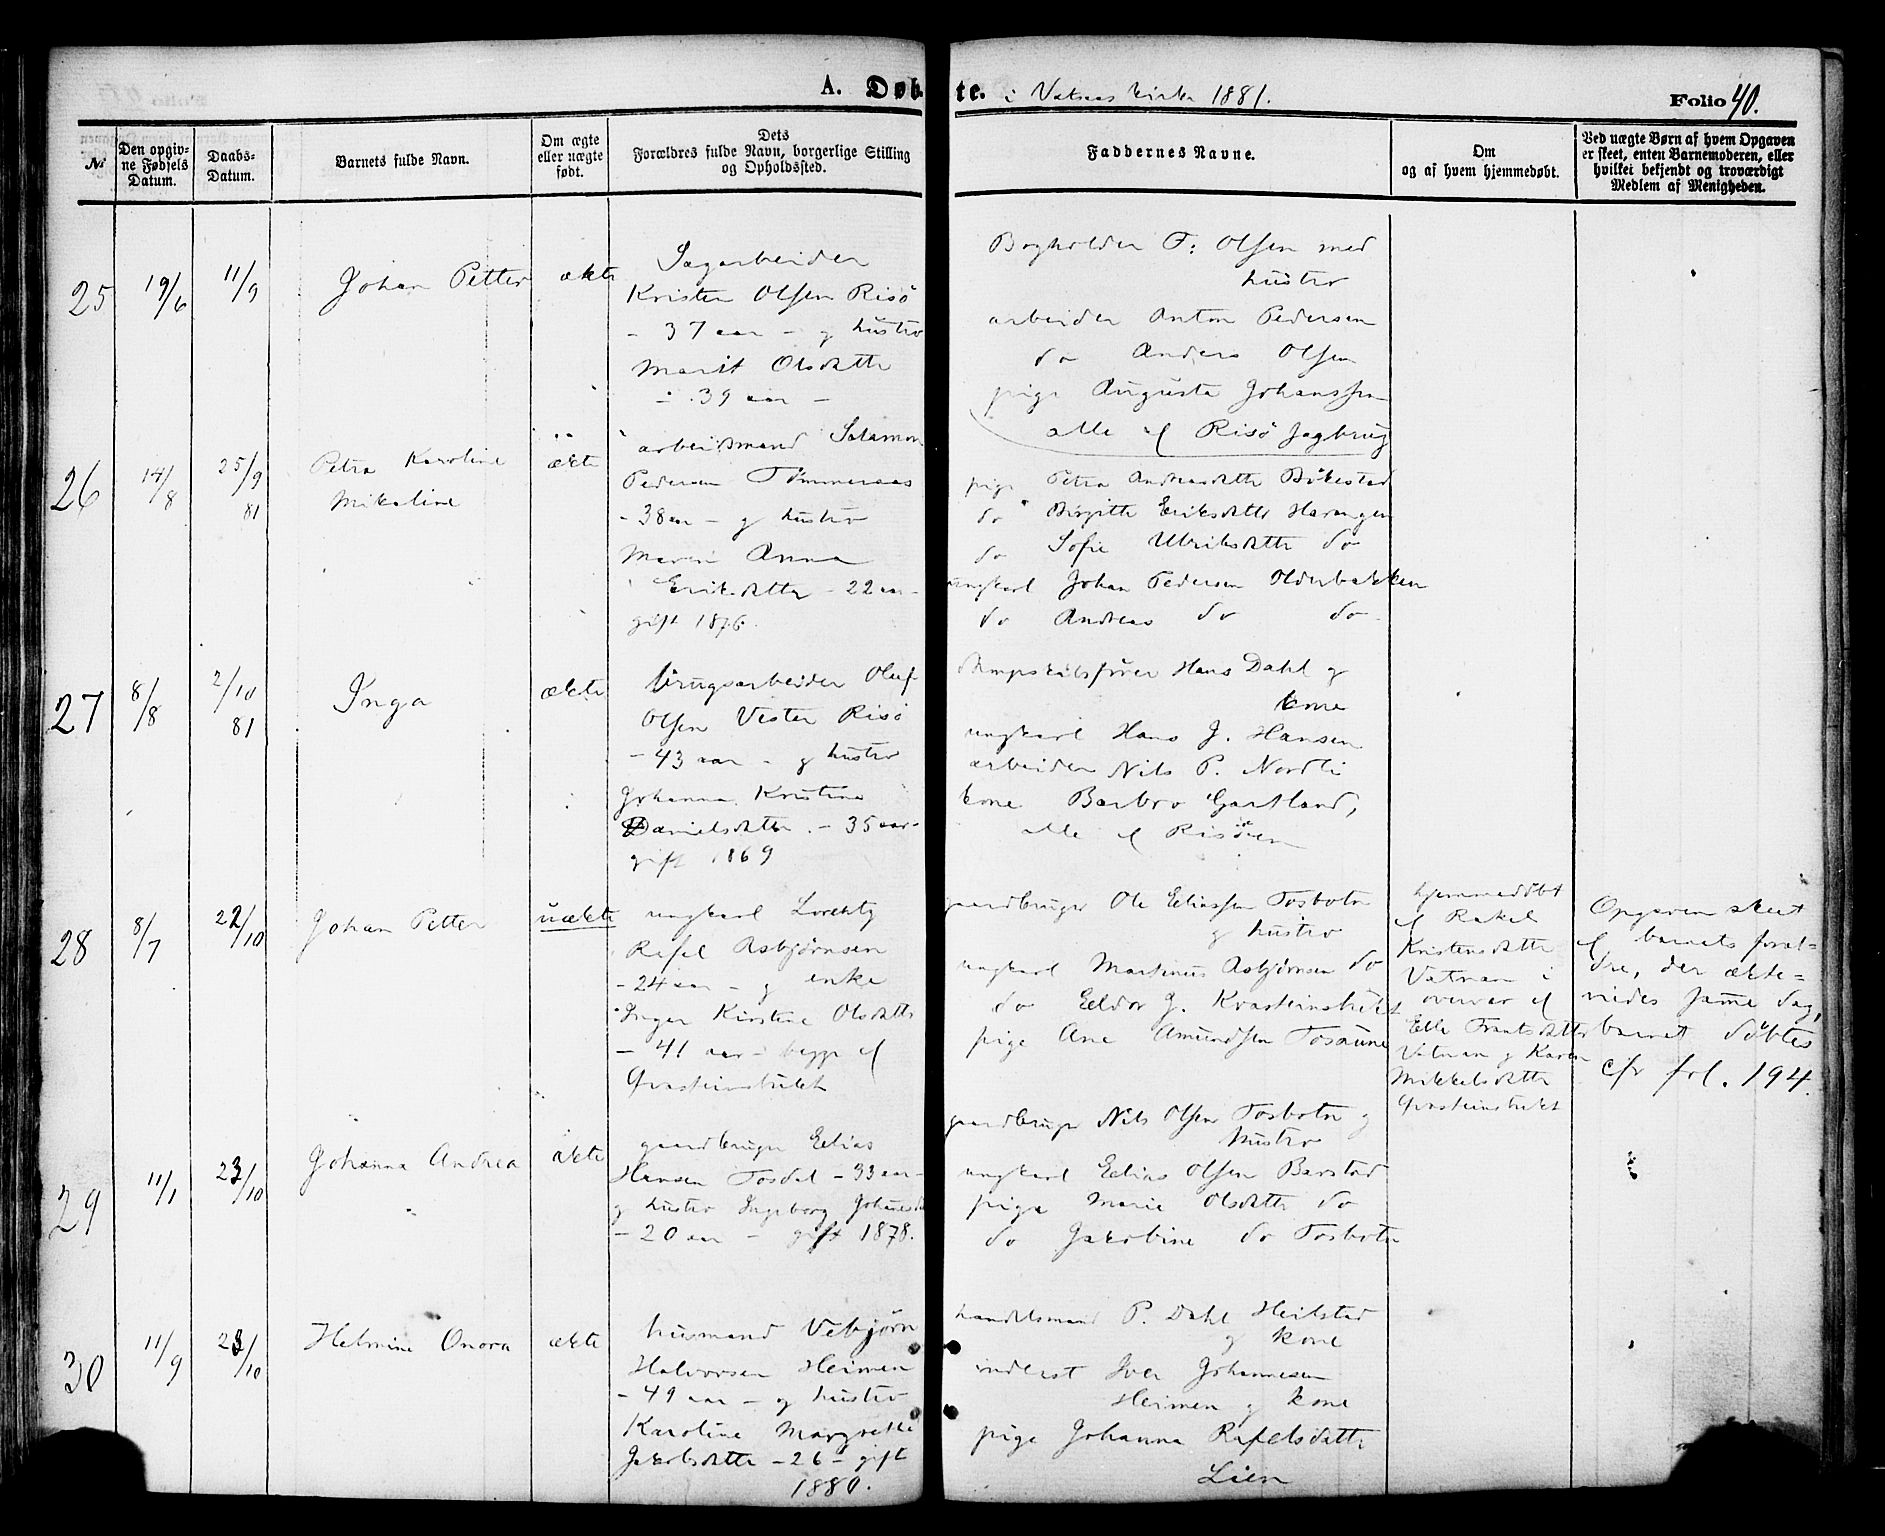 A. Døbte. i Vatnes kirke 1881. Folio 40.
№
Den opgivne Fødsels Datum.
Daabs-Datum.
Barnets fulde Navn.
Om ægte eller uægte født.
Dets Forældres fulde Navn, borgerlige Stilling og Opholdssted.
Faddernes Navne.
Om og af hvem hjemmedøbt.
Ved uægte Børn af hvem Opgaven er skeet, enten Barnemoderen, eller hvilket bekjendt og troværdigt Medlem af Menigheden.
25 19/6 11/9 Johan Petter ækte
Sagarbeider
Kristen Olsen Risö
- 37 aar - og hustro
Marit Olsdatter
- 39 aar -
Bogholder T: Olsen med
hustro
arbeider Anton Pedersen
do Anders Olsen
pige Augusta Johanssen
alle af Risö Sagbrug
26 14/8 25/9 81 Petra Karoline
Mikaline
ækte
arbeidsmand Salamon
Pedersen Tömmeraas
- 38 aar - og hustro
Maren Anna
Eriksdatter - 22 aar -
gift 1876.
pige Petra Andreasdatter Bökestad
do Birgitte Eriksdatter Harangen
do Sofie Ulriksdatter do
ungkarl Johan Pedersen Olderbakken
do Andreas do do
27 8/8 2/10 81 Inga ækte
brugsarbeider Oluf
Olsen Vester Risö
- 43 aar - og hustro
Johanna Kristine
Danielsdatter - 35 aar -
gift 1869
Dampskibsförer Hans Dahl og
kone
ungkarl Hans J. Hansen
arbeider Nils P. Nordli
kone Barbro Gartland,
alle af Risöen
28 8/7 22/10 Johan Petter uækte
ungkarl Lorentz
Rafel Asbjörnsen
- 24 aar - og enke
Inger Kirstine Olsdatter
- 41 aar - begge af
Qvasteinstrklet
gaardbruger Ole Eeliassen Tosbotn
og hustro
ungkarl Martinus Asbjörnsen do
do Eeldor J. Kvasteinstrklet
pige Ane Amundsen Tosaune
hjemmedöbt
af Rakel
Kristensdatter
Vatnan i
overvær af
Elle Frantsdatter
Vatnan og Karen
Mikkelsdatter
Qvasteinstrklet
Opgaven skeet
af barnets foræl-
dre, der ækte-
viedes samme dag,
barnet döbtes
cfr fol. 194.
29 11/1 23/10 Johanna Andrea ækte
gaardbruger Eelias
Hansen Tosdal - 33 aar -
og hustro Ingeborg Johannesd.
- 20 aar - gift 1878.
gaardbruger Nils Olsen Tosbotn og
hustro
ungkarl Eelias Olsen Barstad
pige Marie Olsdatter do
do Jakobine do Tosbotn
30 11/9 23/10 Helmine Onora ækte
husmand Vebjörn
Halvorsen Heimen
- 49 aar - og hustro
Karoline Margrethe
Jakobsdatter - 26 - gift
1880.
handelsmand P. Dahl Heilstad
og kone
inderst Iver Johannesen
Heimen og kone
pige Johanna Rafelsdatter
Lien